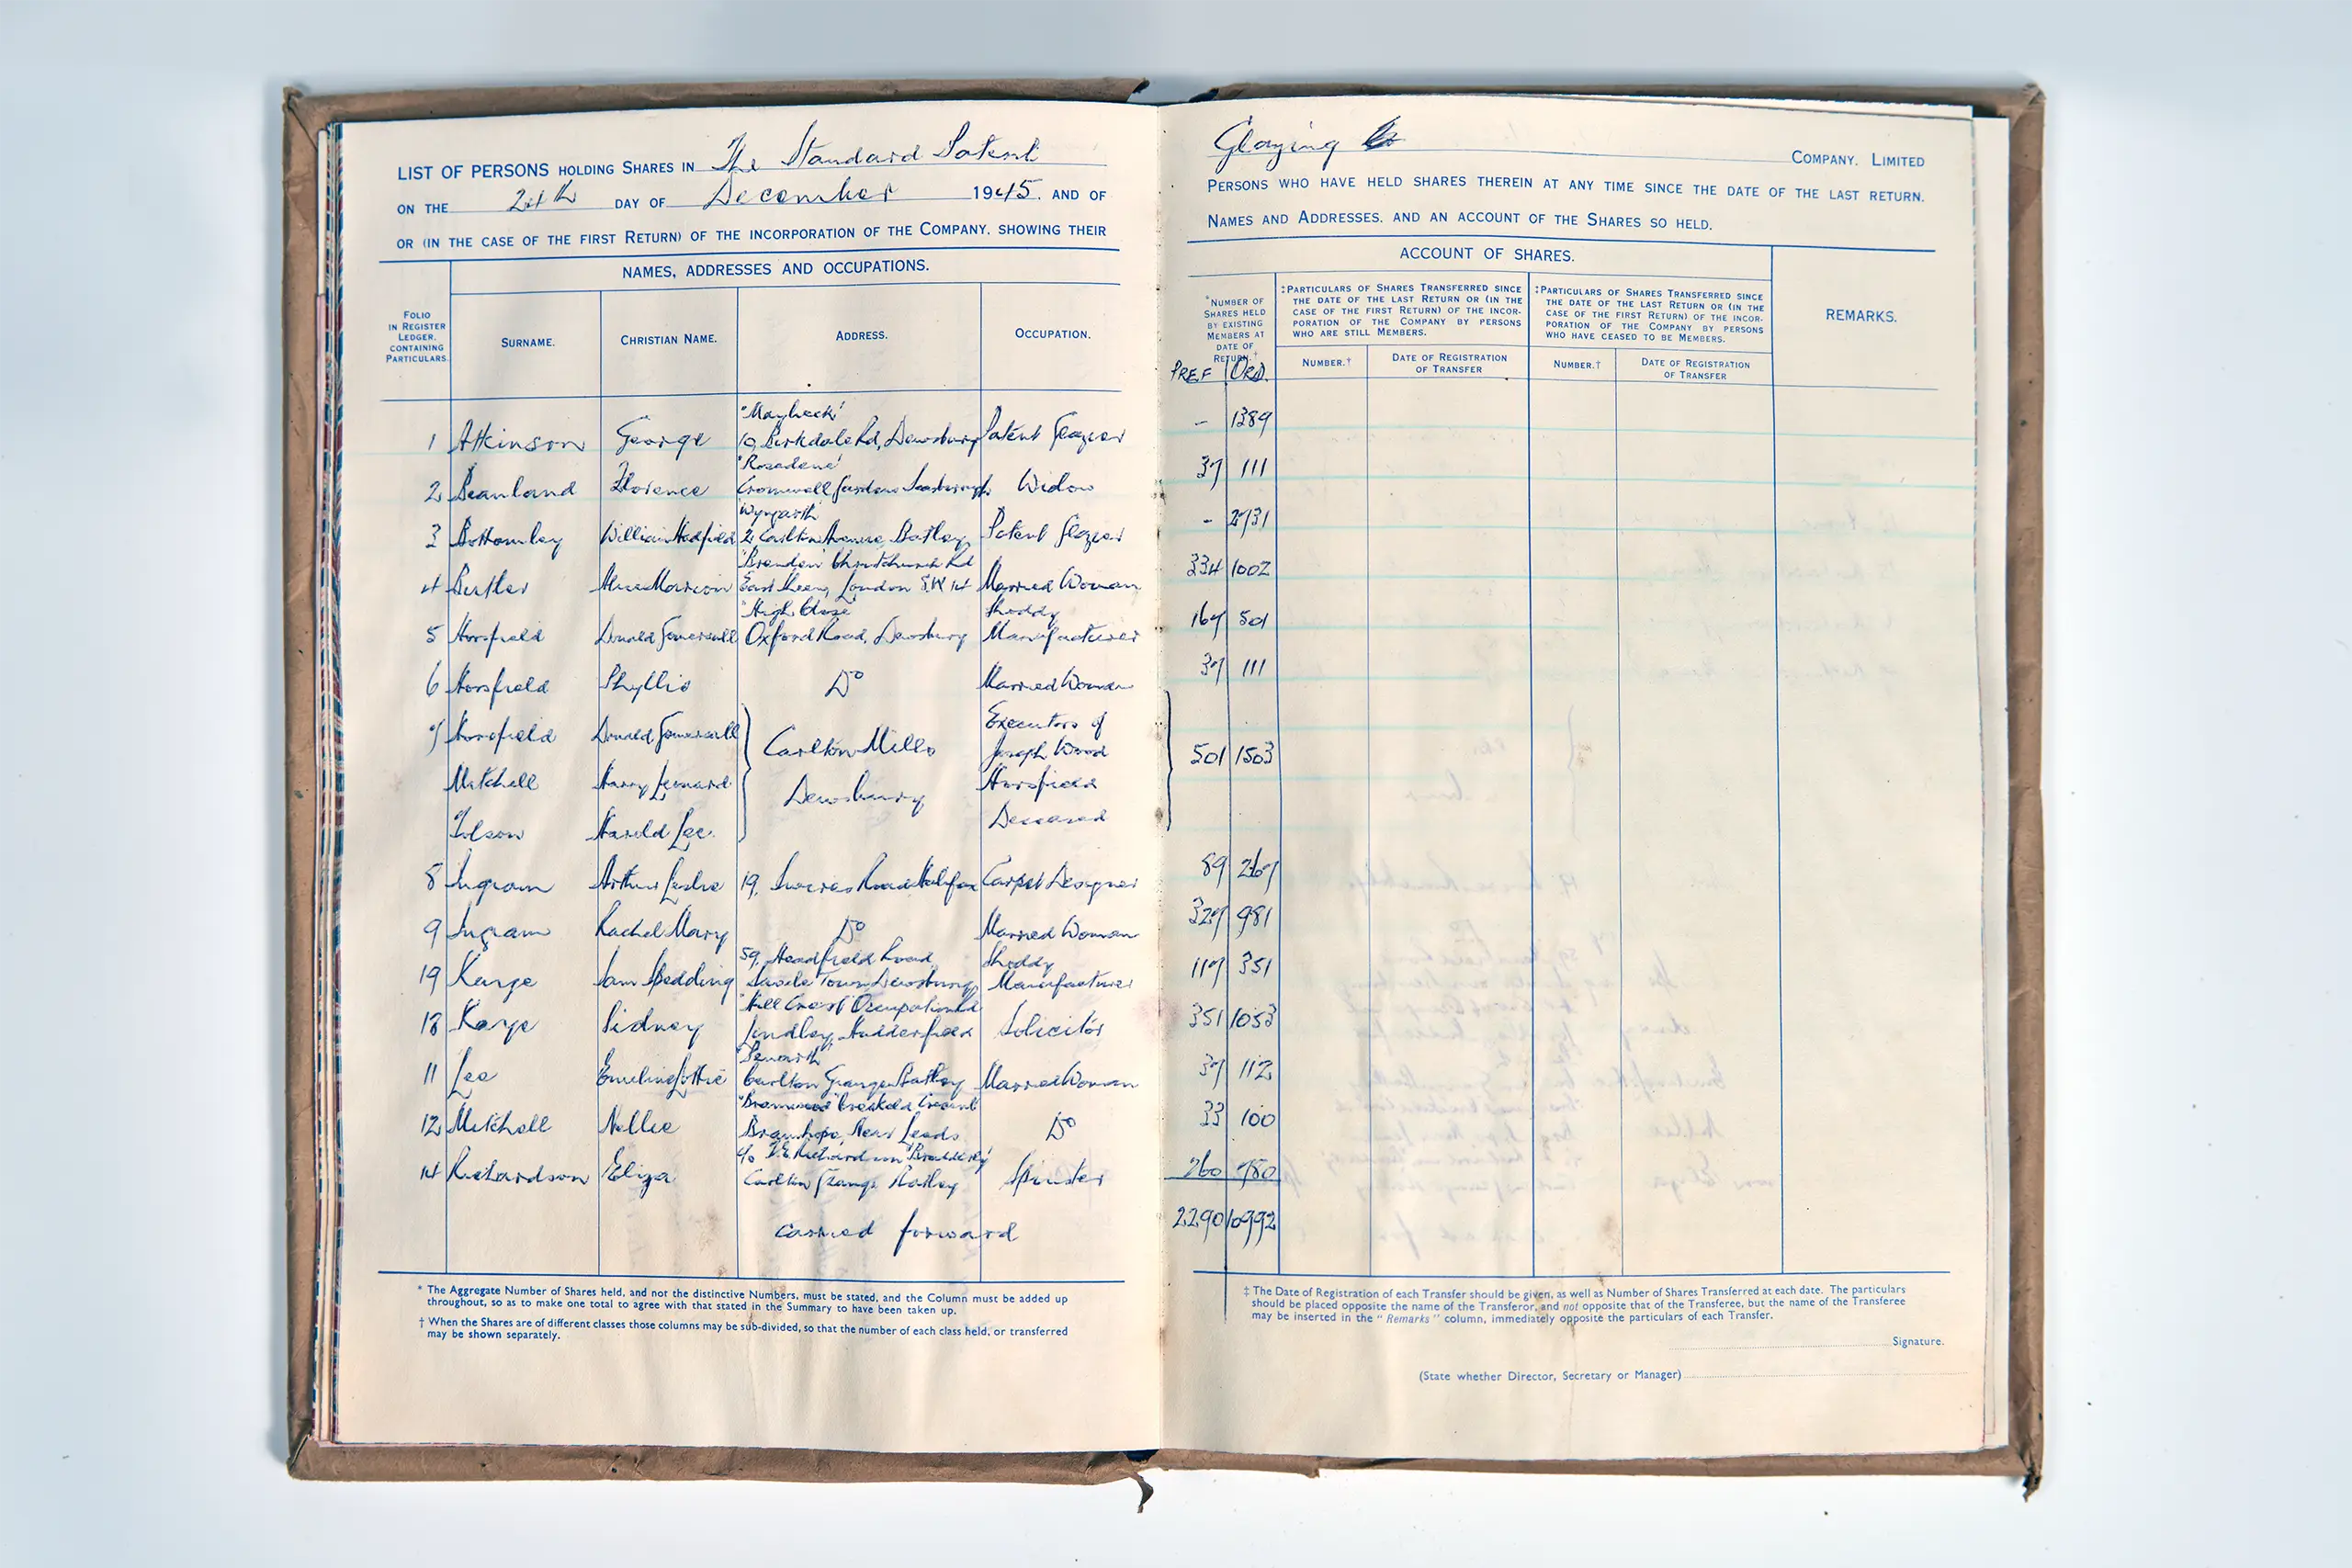 LIST OF PERSONS HOLDING SHARES IN The Standard Patent
ON THE 24th DAY OF December 1945. AND OF
OR (IN THE CASE OF THE FIRST RETURN) OF THE INCORPORATION OF THE COMPANY, SHOWING THEIR
NAMES, ADDRESSES AND OCCUPATIONS.
FOLIO IN REGISTER LEDGER, CONTAINING PARTICULARS.
SURNAME.
CHRISTIAN NAME.
ADDRESS.
OCCUPATION.
"Maybeck"
1 Atkinson George 10, Birkdale Rd, Dewsbury Patent Glazier
"Rosedene"
2 Beanland Florence Cromwell Gardens Widow
3 Bottomley William Hadfield 2 Carlton Avenue, Batley Patent Glazier
Christchurch Rd
4 Butler Alice Marion East Sheen, London S.W 14 Married Woman
"High Close" Shoddy
5 Horsfield Donald Gomersall Oxford Road, Dewsbury Manufacturer
6 Horsfield Phyllis Do Married Woman
7 Horsfield Donald Gomersall Carlton Mills Executors of
Joseph Wood
Mitchell Harry Leonard Dewsbury Horsfield
Tolson Harold Lee. Deceased
8 Ingram Arthur Leslie 19, Road Halifax Carpet Designer
9 Ingram Rachel Mary Do Married Woman
59, Headfield Road Shoddy
19 Kaye Sam Spedding Savile Town Dewsbury Manufacturer
"Hill Crest" Occupation Rd
18 Kaye Sidney Lindley, Huddersfield Solicitor
11 Lee Emeline Lottie Carlton Grange Batley Married Woman
Creskeld Crescent
12 Mitchell Nellie Bramhope, Near Leeds Do
c/o Richardson
14 Richardson Eliza Carlton Grange Batley Spinster
carried forward
* The Aggregate Number of Shares held, and not the distinctive Numbers, must be stated, and the Column must be added up
throughout, so as to make one total to agree with that stated in the Summary to have been taken up.
† When the Shares are of different classes those columns may be sub-divided, so that the number of each class held, or transferred
may be shown separately.
Glazing COMPANY, LIMITED
PERSONS WHO HAVE HELD SHARES THEREIN AT ANY TIME SINCE THE DATE OF THE LAST RETURN,
NAMES AND ADDRESSES, AND AN ACCOUNT OF THE SHARES SO HELD.
ACCOUNT OF SHARES.
*NUMBER OF SHARES HELD BY EXISTING MEMBERS AT DATE OF RETURN.†
‡PARTICULARS OF SHARES TRANSFERRED SINCE
THE DATE OF THE LAST RETURN OR (IN THE
CASE OF THE FIRST RETURN) OF THE INCOR-
PORATION OF THE COMPANY BY PERSONS
WHO ARE STILL MEMBERS.
‡PARTICULARS OF SHARES TRANSFERRED SINCE
THE DATE OF THE LAST RETURN OR (IN THE
CASE OF THE FIRST RETURN) OF THE INCOR-
PORATION OF THE COMPANY BY PERSONS
WHO HAVE CEASED TO BE MEMBERS.
REMARKS.
NUMBER.†
DATE OF REGISTRATION
OF TRANSFER
NUMBER.†
DATE OF REGISTRATION
OF TRANSFER
PREF ORD.
- 1389
37 111
- 2731
334 1002
167 501
37 111
501 1503
89 267
327 981
117 351
351 1053
37 112
33 100
260 780
2290 10992
‡ The Date of Registration of each Transfer should be given, as well as Number of Shares Transferred at each date. The particulars
should be placed opposite the name of the Transferor, and not opposite that of the Transferee, but the name of the Transferee
may be inserted in the "Remarks" column, immediately opposite the particulars of each Transfer.
Signature.
(State whether Director, Secretary or Manager)